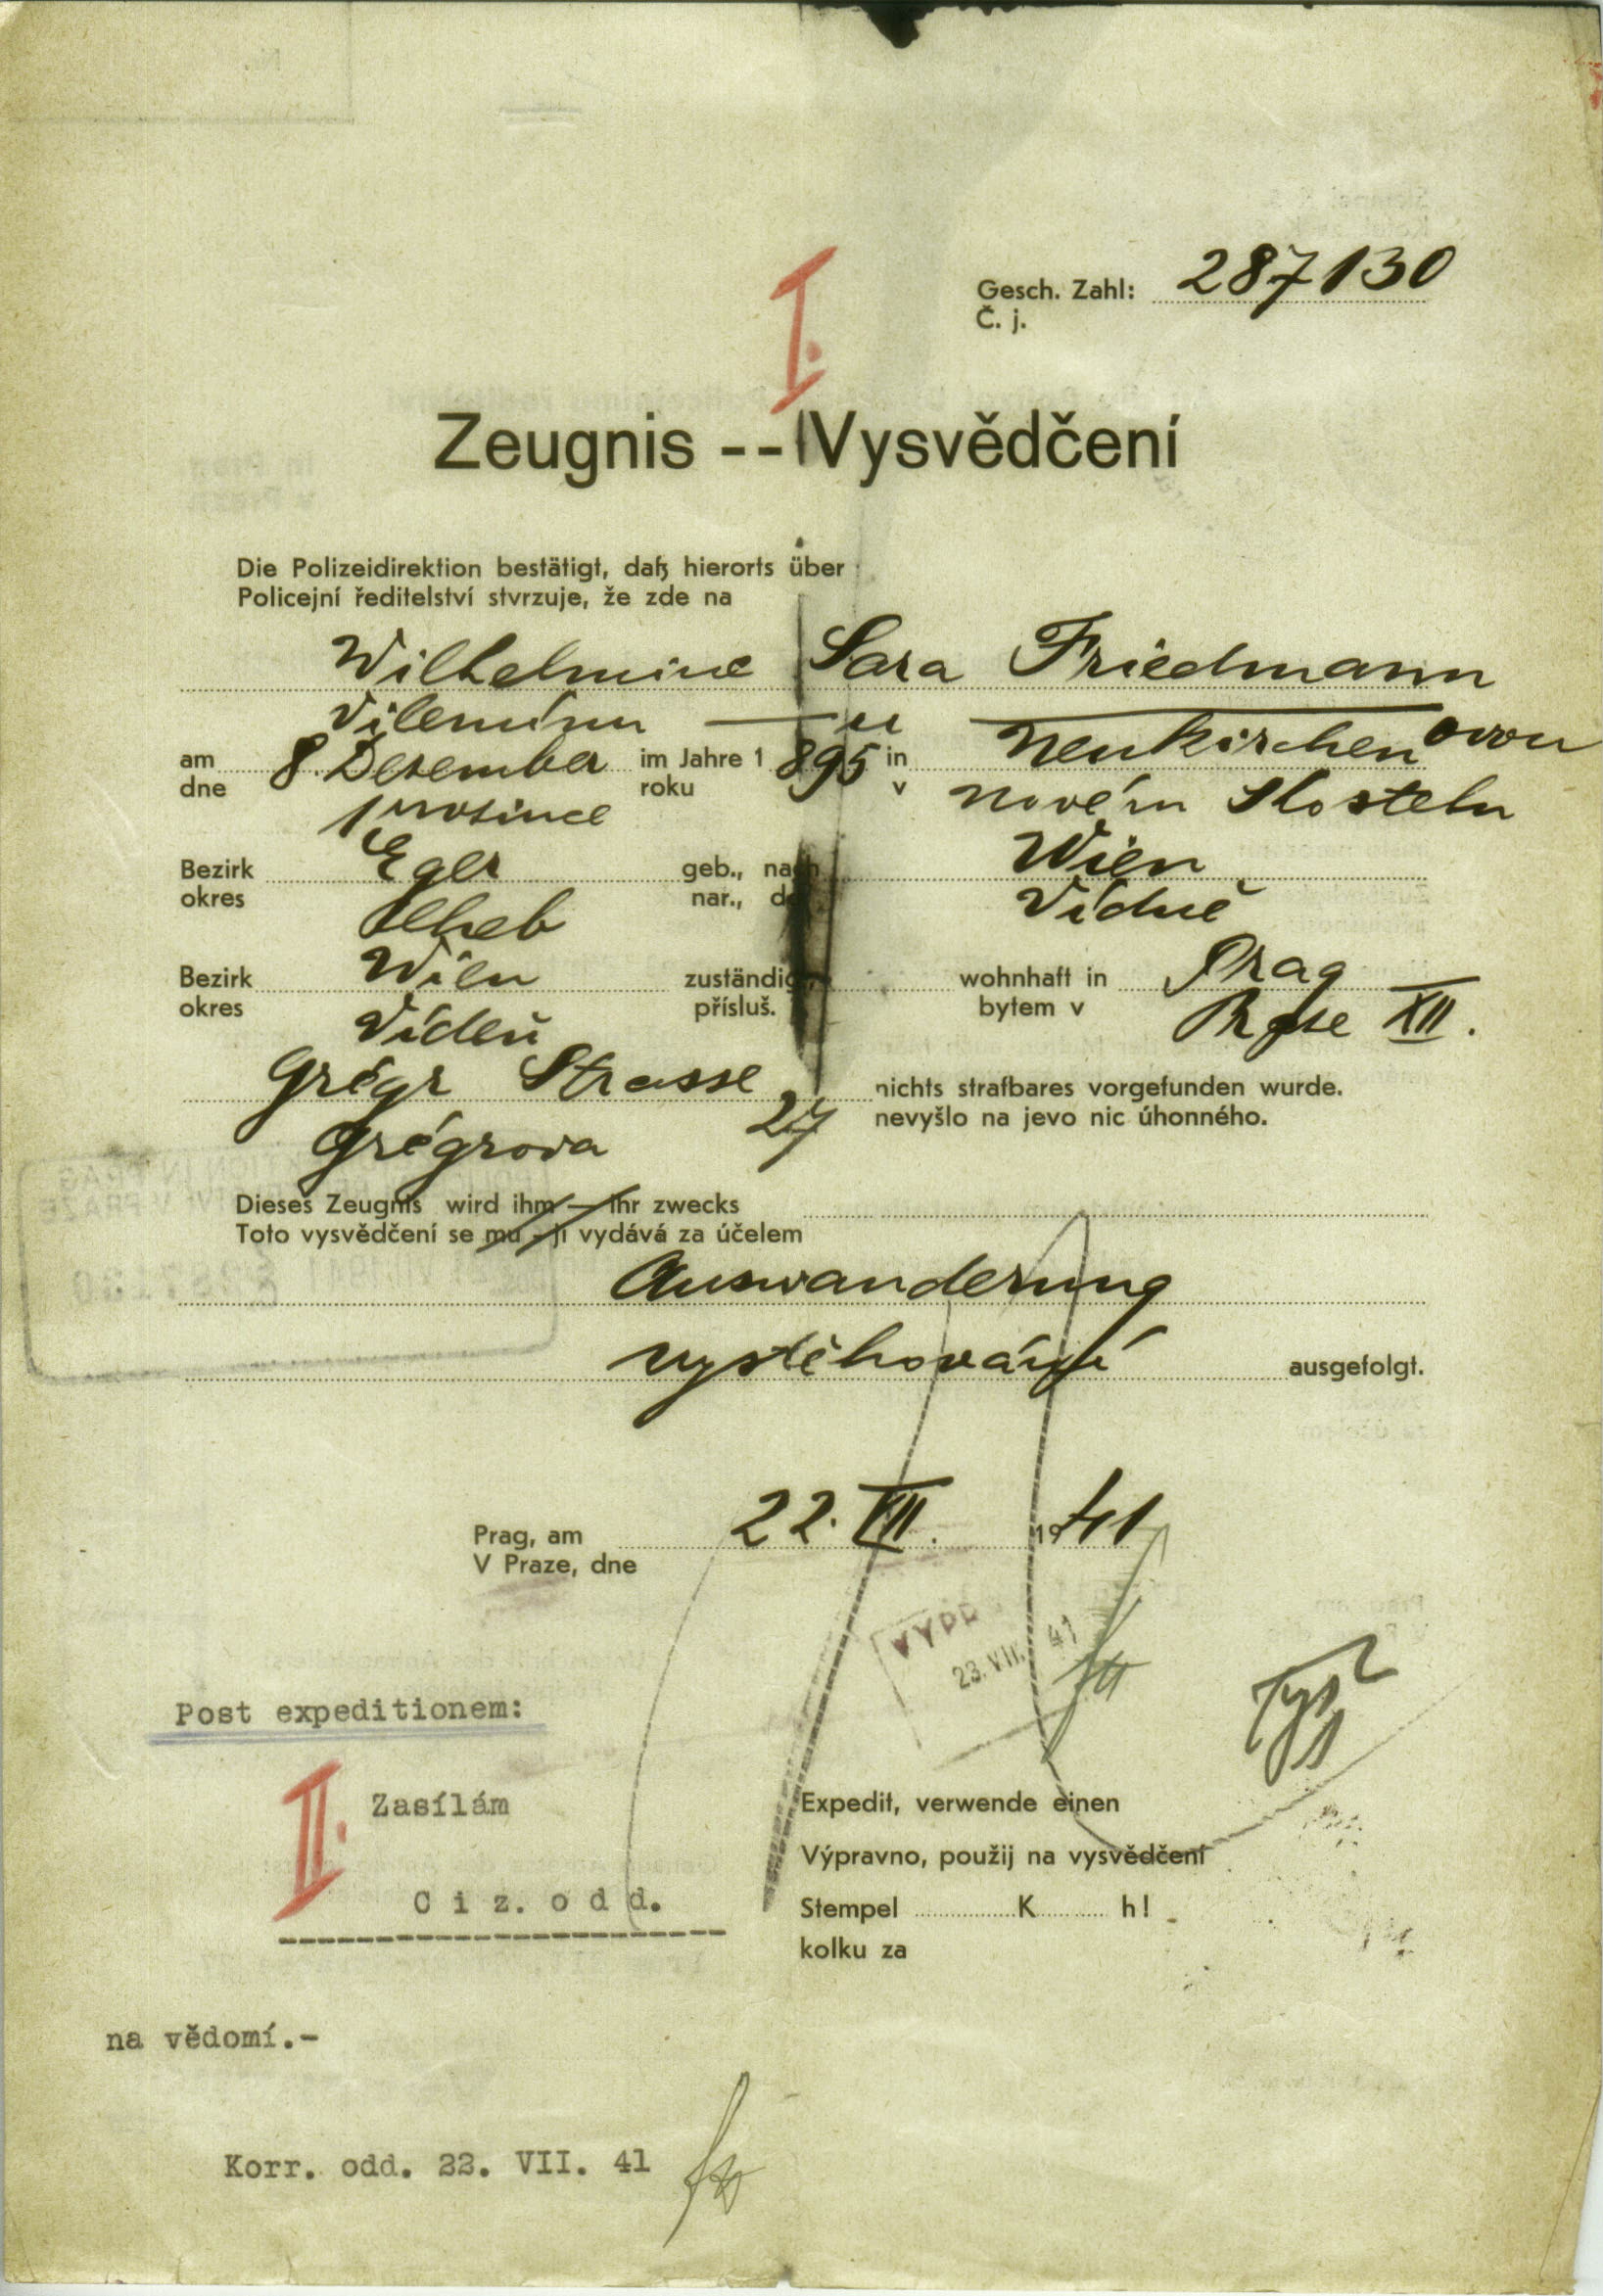 Gesch. Zahl: 287130
Č. j.
I.
Zeugnis -- Vysvědčení
Die Polizeidirektion bestätigt, daß hierorts über
Policejní ředitelství stvrzuje, že zde na
Wilhelmine Sara Friedmann
Vilemínu — u — ovou
am 8. Dezember im Jahre 1 895 in Neukirchen
dne prosince roku v Novém Kostelu
Bezirk Eger geb., nach Wien
okres Cheb nar., do Vídně
Bezirk Wien zuständig, wohnhaft in Prag
okres Vídeň přísluš. bytem v Praze XII.
Grégr Strasse 27 nichts strafbares vorgefunden wurde.
Grégrova nevyšlo na jevo nic úhonného.
Dieses Zeugnis wird ihm — ihr zwecks
Toto vysvědčení se mu - jí vydává za účelem
Auswanderung
vystěhování ausgefolgt.
Prag, am 22. VII. 1941
V Praze, dne
23. VII. 41
Post expeditionem:
II. Zasílám
C i z. o d d.
Expedit, verwende einen
Výpravno, použij na vysvědčení
Stempel K h!
kolku za
na vědomí.-
Korr. odd. 22. VII. 41